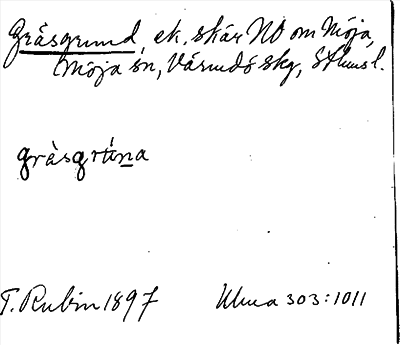 Gråsgrund, ek. skär NO om Möja,
Möja sn, Värmdö skg, Sthms l.
gràsgrúna
T. Rubin 1897 Ulua 303:1011